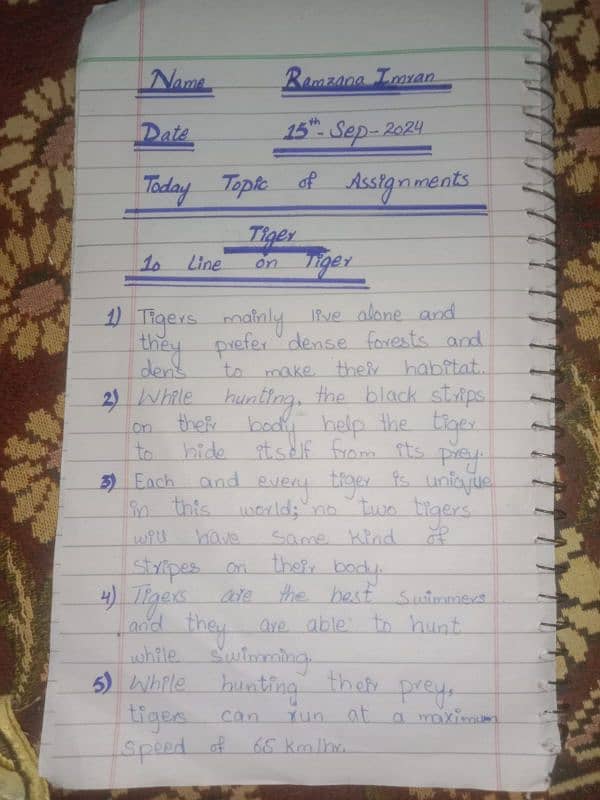 Name Ramzana Imran
Date 15th - Sep - 2024
Today Topic of Assignments
Tiger
10 Line on Tiger
1) Tigers mainly live alone and
they prefer dense forests and
dens to make their habitat.
2) While hunting, the black strips
on their body help the tiger
to hide itself from its prey.
3) Each and every tiger is unique
in this world; no two tigers
will have same kind of
stripes on their body.
4) Tigers are the best swimmers
and they are able to hunt
while swimming.
5) While hunting their prey,
tigers can run at a maximum
speed of 65 km/hr.